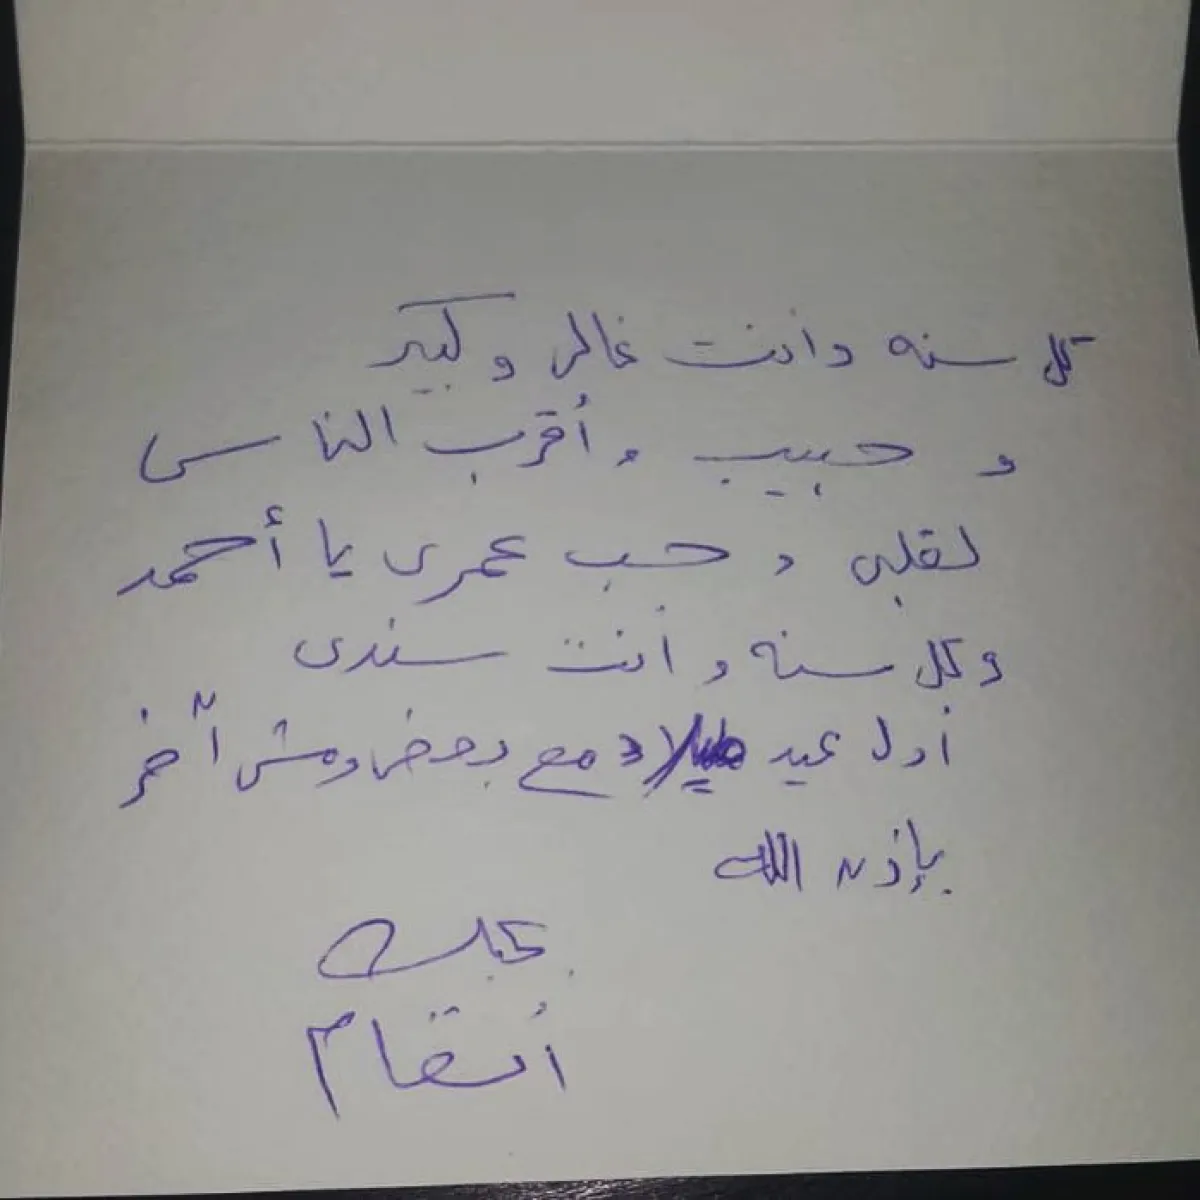 كل سنه وأنت غالى وكبير
و حبيب وأقرب الناس
لقلبى وحب عمرى يا أحمد
وكل سنه وأنت سندى
أول عيد ميلاد مع بعض ومش آخر
بإذن الله
بحبك
أنغام